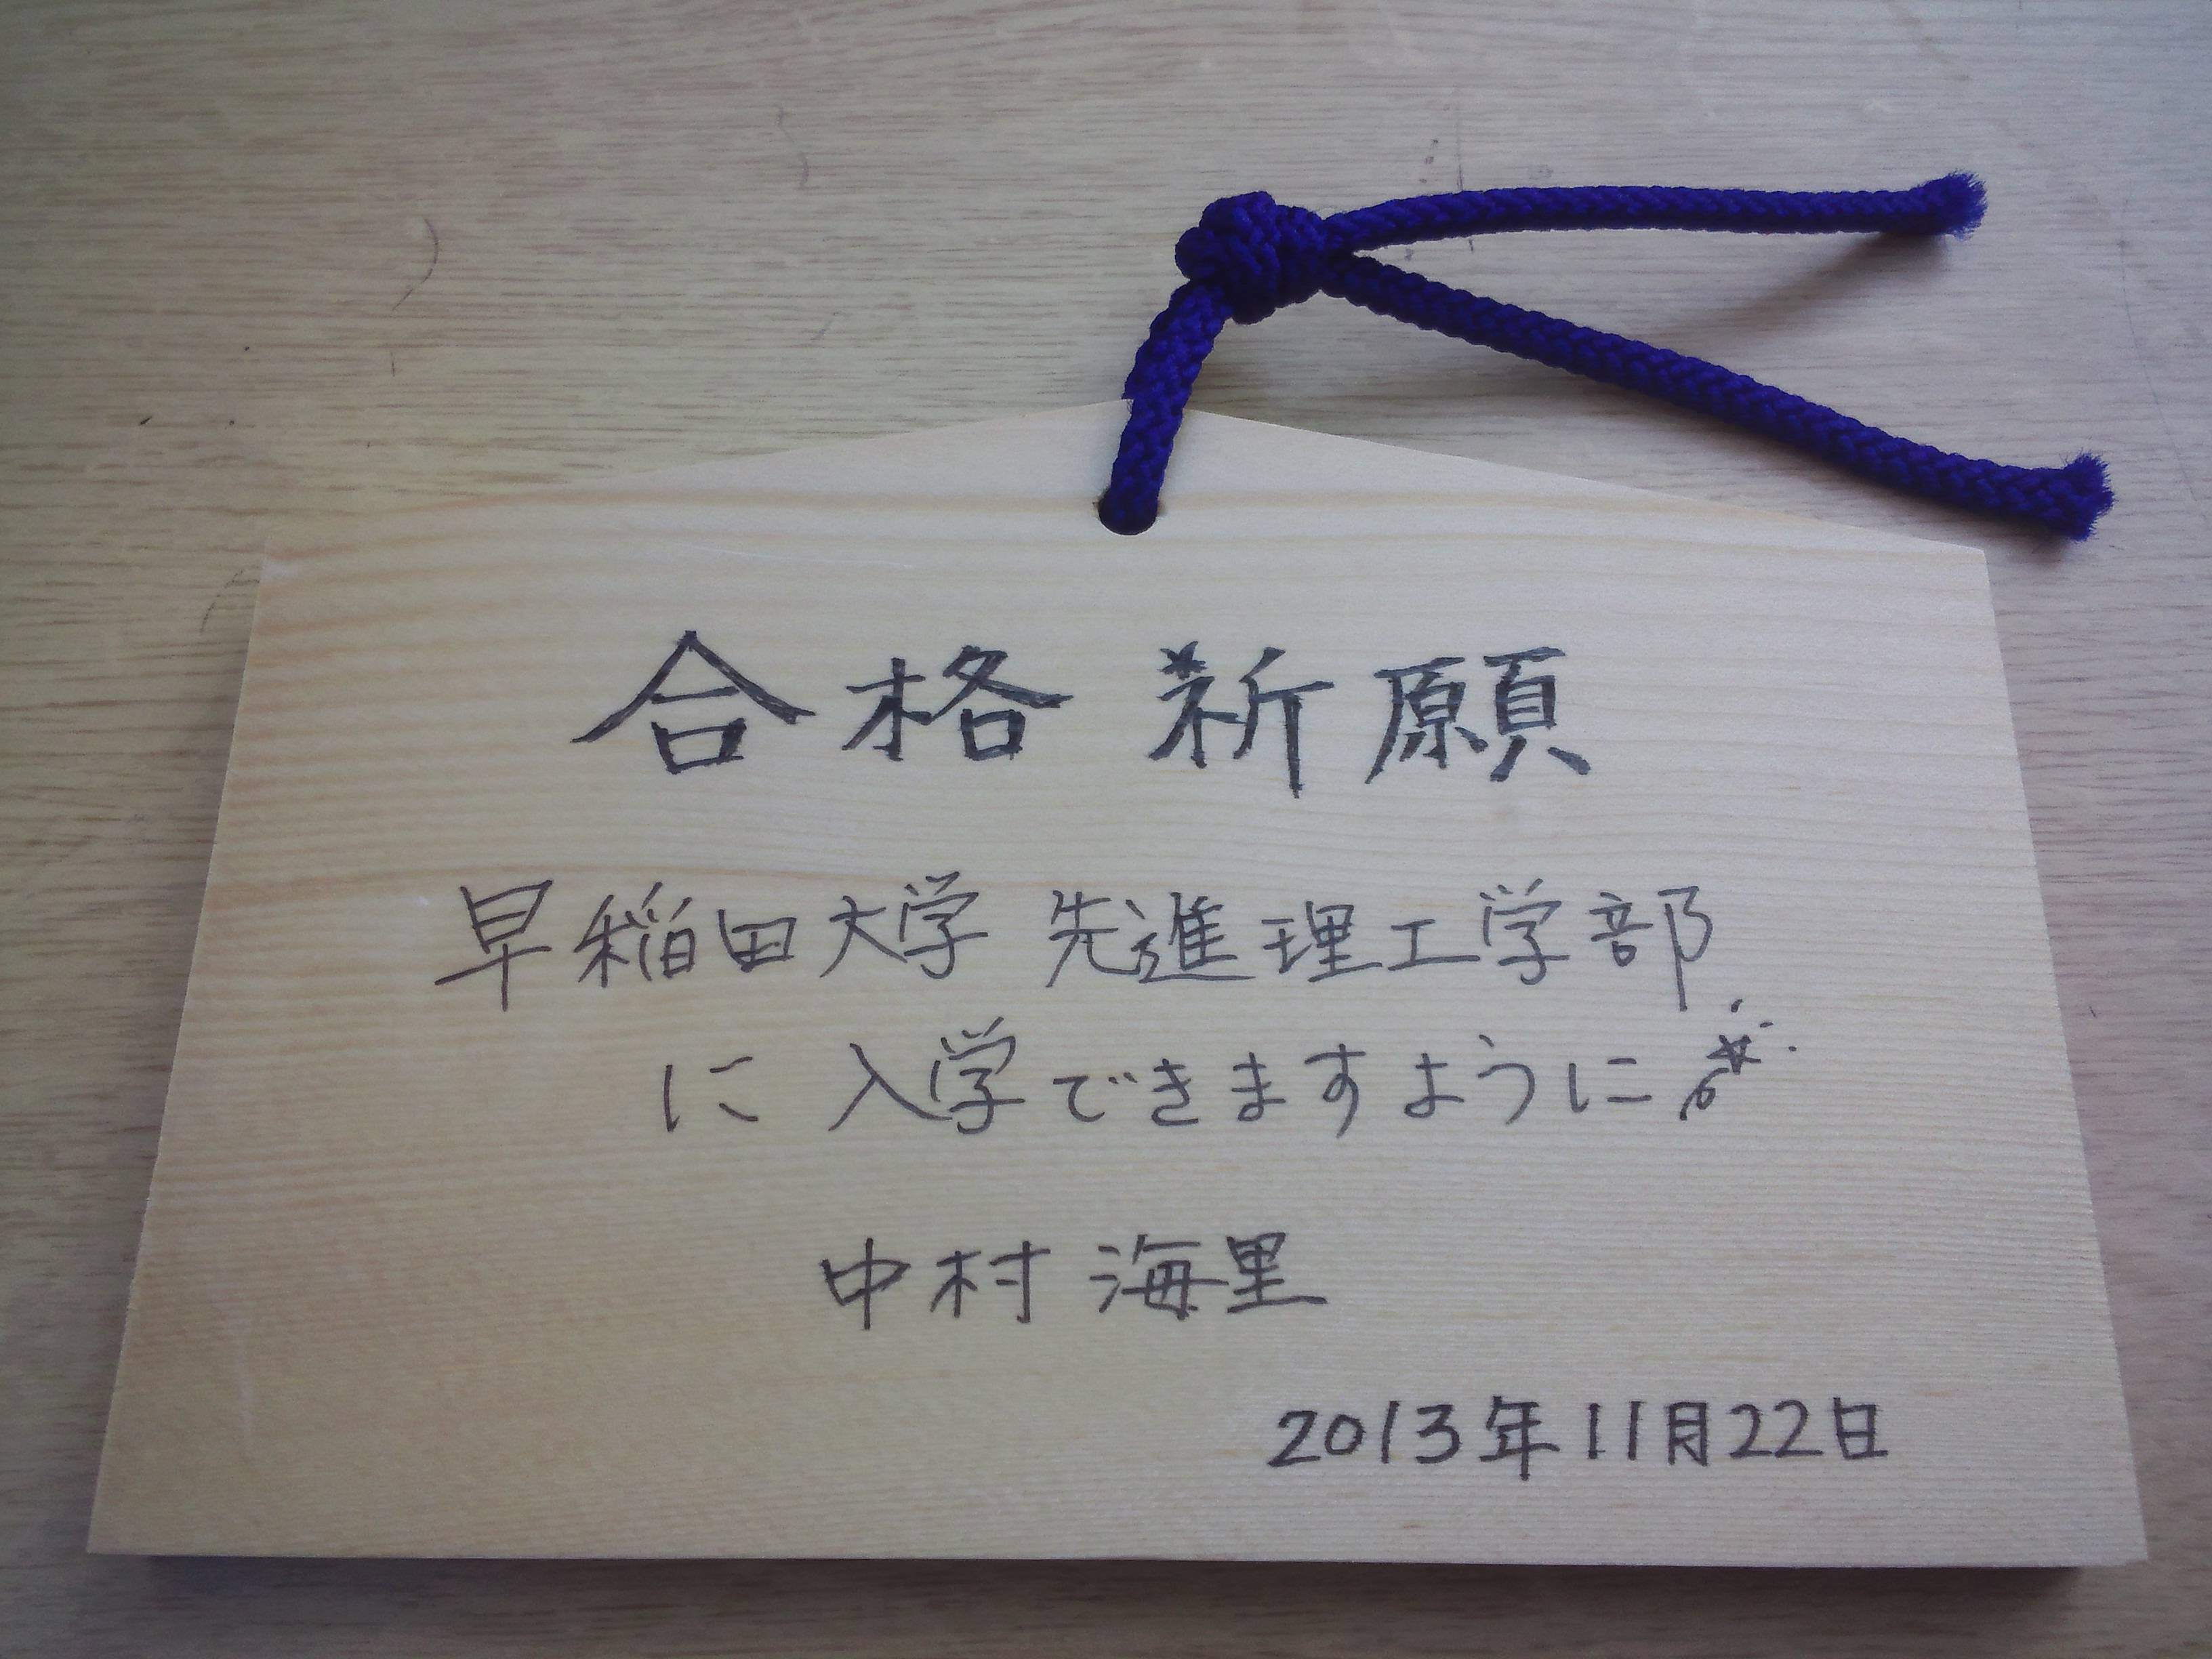 合格祈願
早稲田大学 先進理工学部
に 入学できますように
中村 海里
2013年11月22日